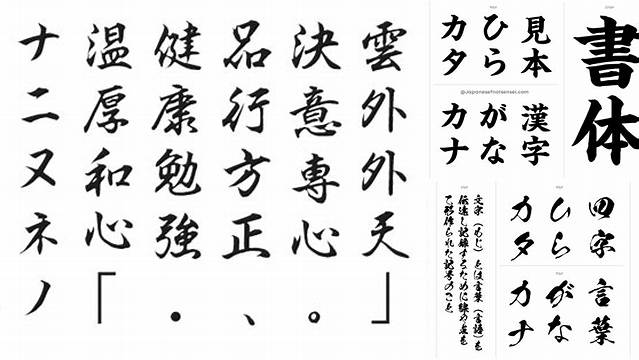 雲外外天」
決意専心。
品行方正、
健康勉強・
温厚和心「
ナニヌネノ
見本
ひら
カタ
漢字
がな
カナ
書体
文字（もじ）とは言葉（言語）を
伝達し記録するために線や点を
て形作られた記号のこと。
四字
ひら
カタ
言葉
がな
カナ